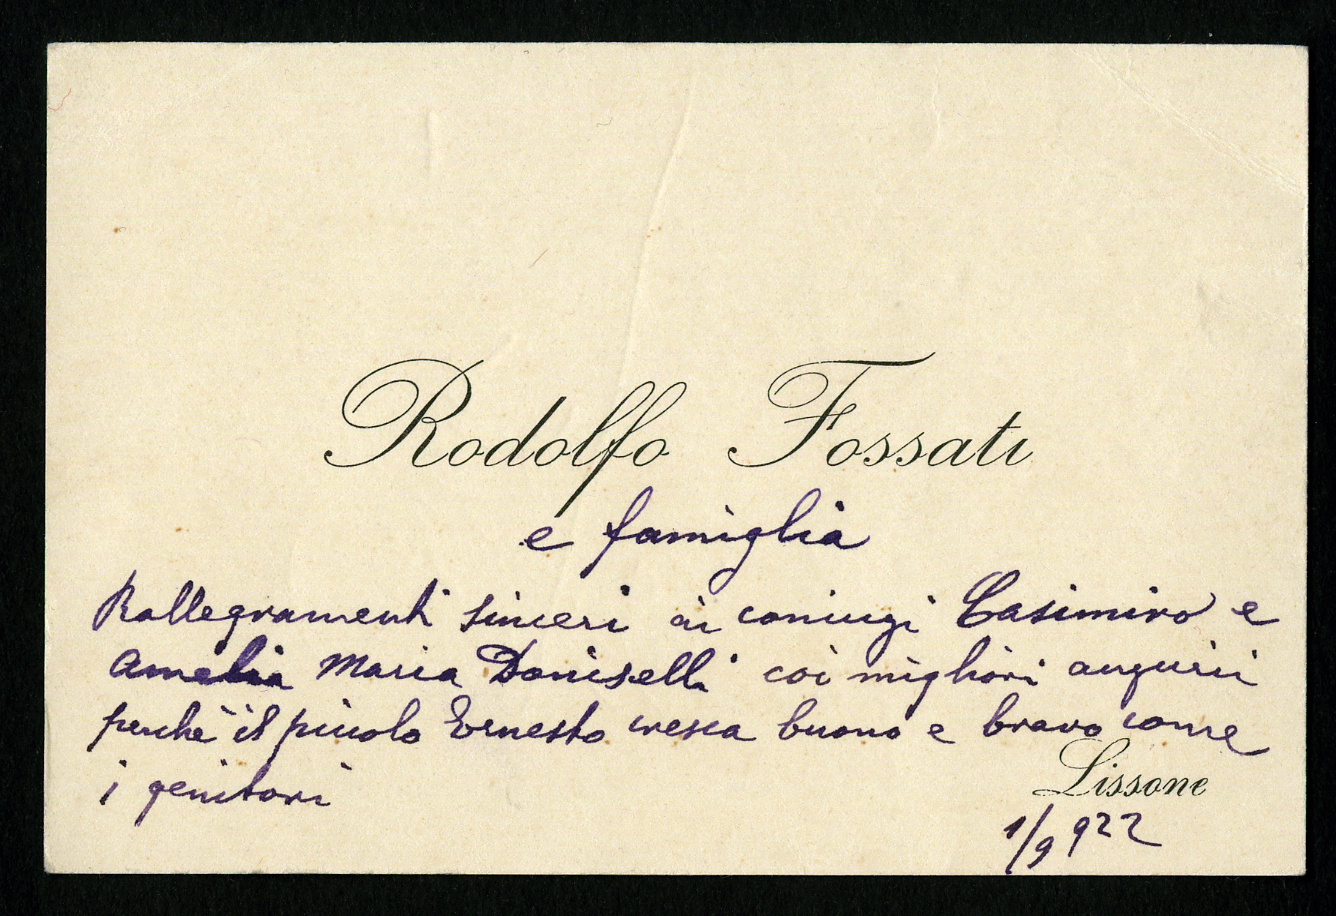 Rodolfo Fossati
e famiglia
Rallegramenti sinceri ai coniugi Casimiro e
Amelia Maria Doniselli coi migliori augurii
perchè il piccolo Ernesto cresca buono e bravo come
i genitori
Lissone
1/9 922